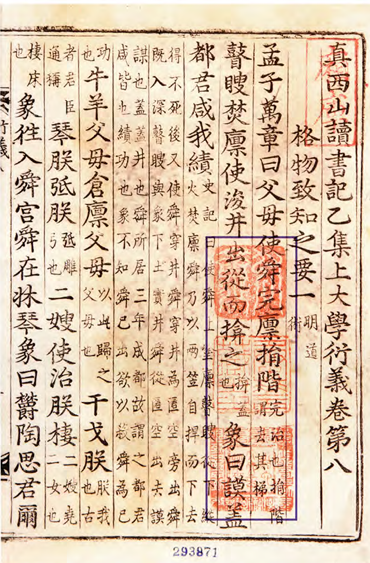 真西山讀書記乙集上大學衍義卷第八
格物致知之要一
明道
術
孟子萬章曰父母使舜完廩揹階
完治也揹階
謂去其梯
瞽瞍焚廩使浚井出從而揜之
揜蓋
也
象曰謨蓋
都君咸我績
史記曰使舜上塗廩瞽瞍從下縱
火焚廩舜乃以兩笠自捍而下去
得不死後又使舜穿井舜穿井為匿空旁出舜
既入深瞽瞍與象下土實井舜從匿空出去謨
謀也蓋蓋井也舜所居三年成都故謂之都君
咸皆也績功也象不知舜已出欲以殺舜為已
功
也
牛羊父母倉廩父母
以此歸之
父母也
干戈朕
朕我
也古
者君臣
通稱
琴朕弤朕
弤雕
弓也
二嫂使治朕棲
二嫂堯
二女也
棲床
也
象往入舜宮舜在牀琴象曰鬱陶思君爾
293871